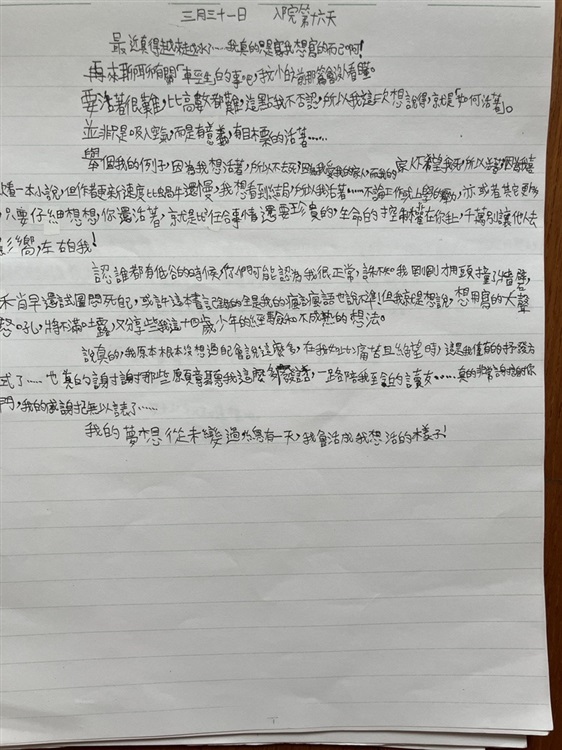 三月三十一日 入院第十六天
最近真得越來越水了……我真的只是寫我想寫的而已啊!
再來聊聊所有關「輕生的事吧,我小的前那篇
要活著很難,比高數都難,這點我不否認,所以我這次想說得,就是「如何活著」。
並非只是吸入空氣,而是有意義,有目標的活著……
舉個我的例子,因為我想活著,所以不去死了因為我愛我的家人,而我的家人不希望我死,所以
看一本小說,但作者更新速度比蝸牛還慢,我想看到結局,所以我活著……不論工作或上學的動力,亦或者其它更
只要仔細想想你還活著,就是比任何事情還要珍貴的,生命的控制權在你手上,千萬別讓他人去
影嚮,左右我!
認誰都有低谷的時候,你們可能認為我很正常,許不知我剛剛才用頭撞了牆壁,
禾肖早還試圖悶死自己,或許這本書記錄的全是我的瘋言瘋語也說不準但我就是想說,想用寫的大聲
怒吼,將不滿吐露,又分享些我這十四歲少年的經驗和不成熟的想法。
說真的,我原本根本沒想過自己會說這麼多,在我如此痛苦且絕望時,這是我僅有的抒發方
式了……也真的謝謝那些願意聽我這麼多廢話,一路陪我至今的讀友……真的非常謝謝你
們,我的感謝把無以言表了……
我的夢想從未變過總有一天,我會活成我想活的樣子!